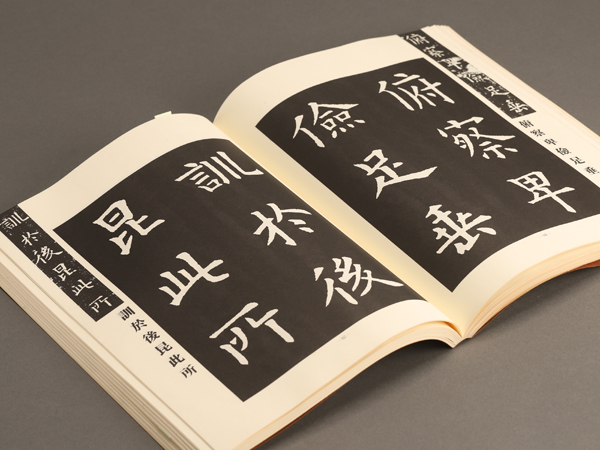 俯察卑儉足垂
俯察卑儉足垂
俯察卑
儉足垂
訓於後
昆此所
訓於後昆此所
訓於後昆此所